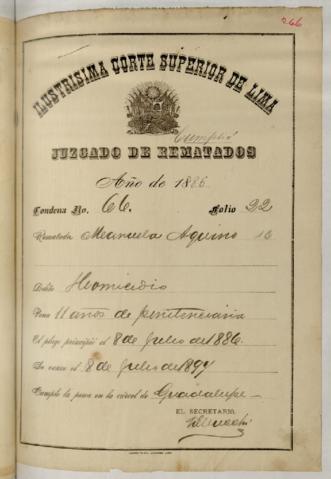 266
ILUSTRISIMA CORTE SUPERIOR DE LIMA
Cumplió
JUZGADO DE REMATADOS
Año de 1886
Condena No. 66. Folio 22
Rematada Manuela Aquino
Delito Homicidio
Pena 11 años de penitenciaria
El plazo principió el 8 de Julio de 1886.
Se vence el 8 de Julio de 1897
Cumple la pena en la cárcel de Guadalupe
EL SECRETARIO,